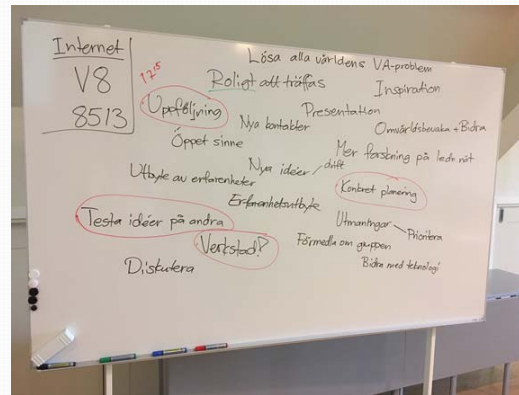 Internet
V8
8513
1215
Lösa alla världens VA-problem
Roligt att träffas
Inspiration
Uppföljning
Presentation
Nya kontakter
Omvärldsbevaka + Bidra
Öppet sinne
Mer forskning på ledn nät
Nya idéer / drift
Utbyte av erfarenheter
Konkret planering
Erfarenhetsutbyte
Testa idéer på andra
Utmaningar
Prioritera
Verkstad?
Förmedla om gruppen
Diskutera
Bidra med teknologi